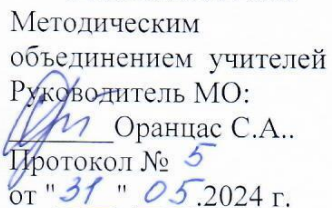 Методическим
объединением учителей
Руководитель МО:
______Оранцас С.А..
Протокол № 5
от "31 " 05.2024 г.